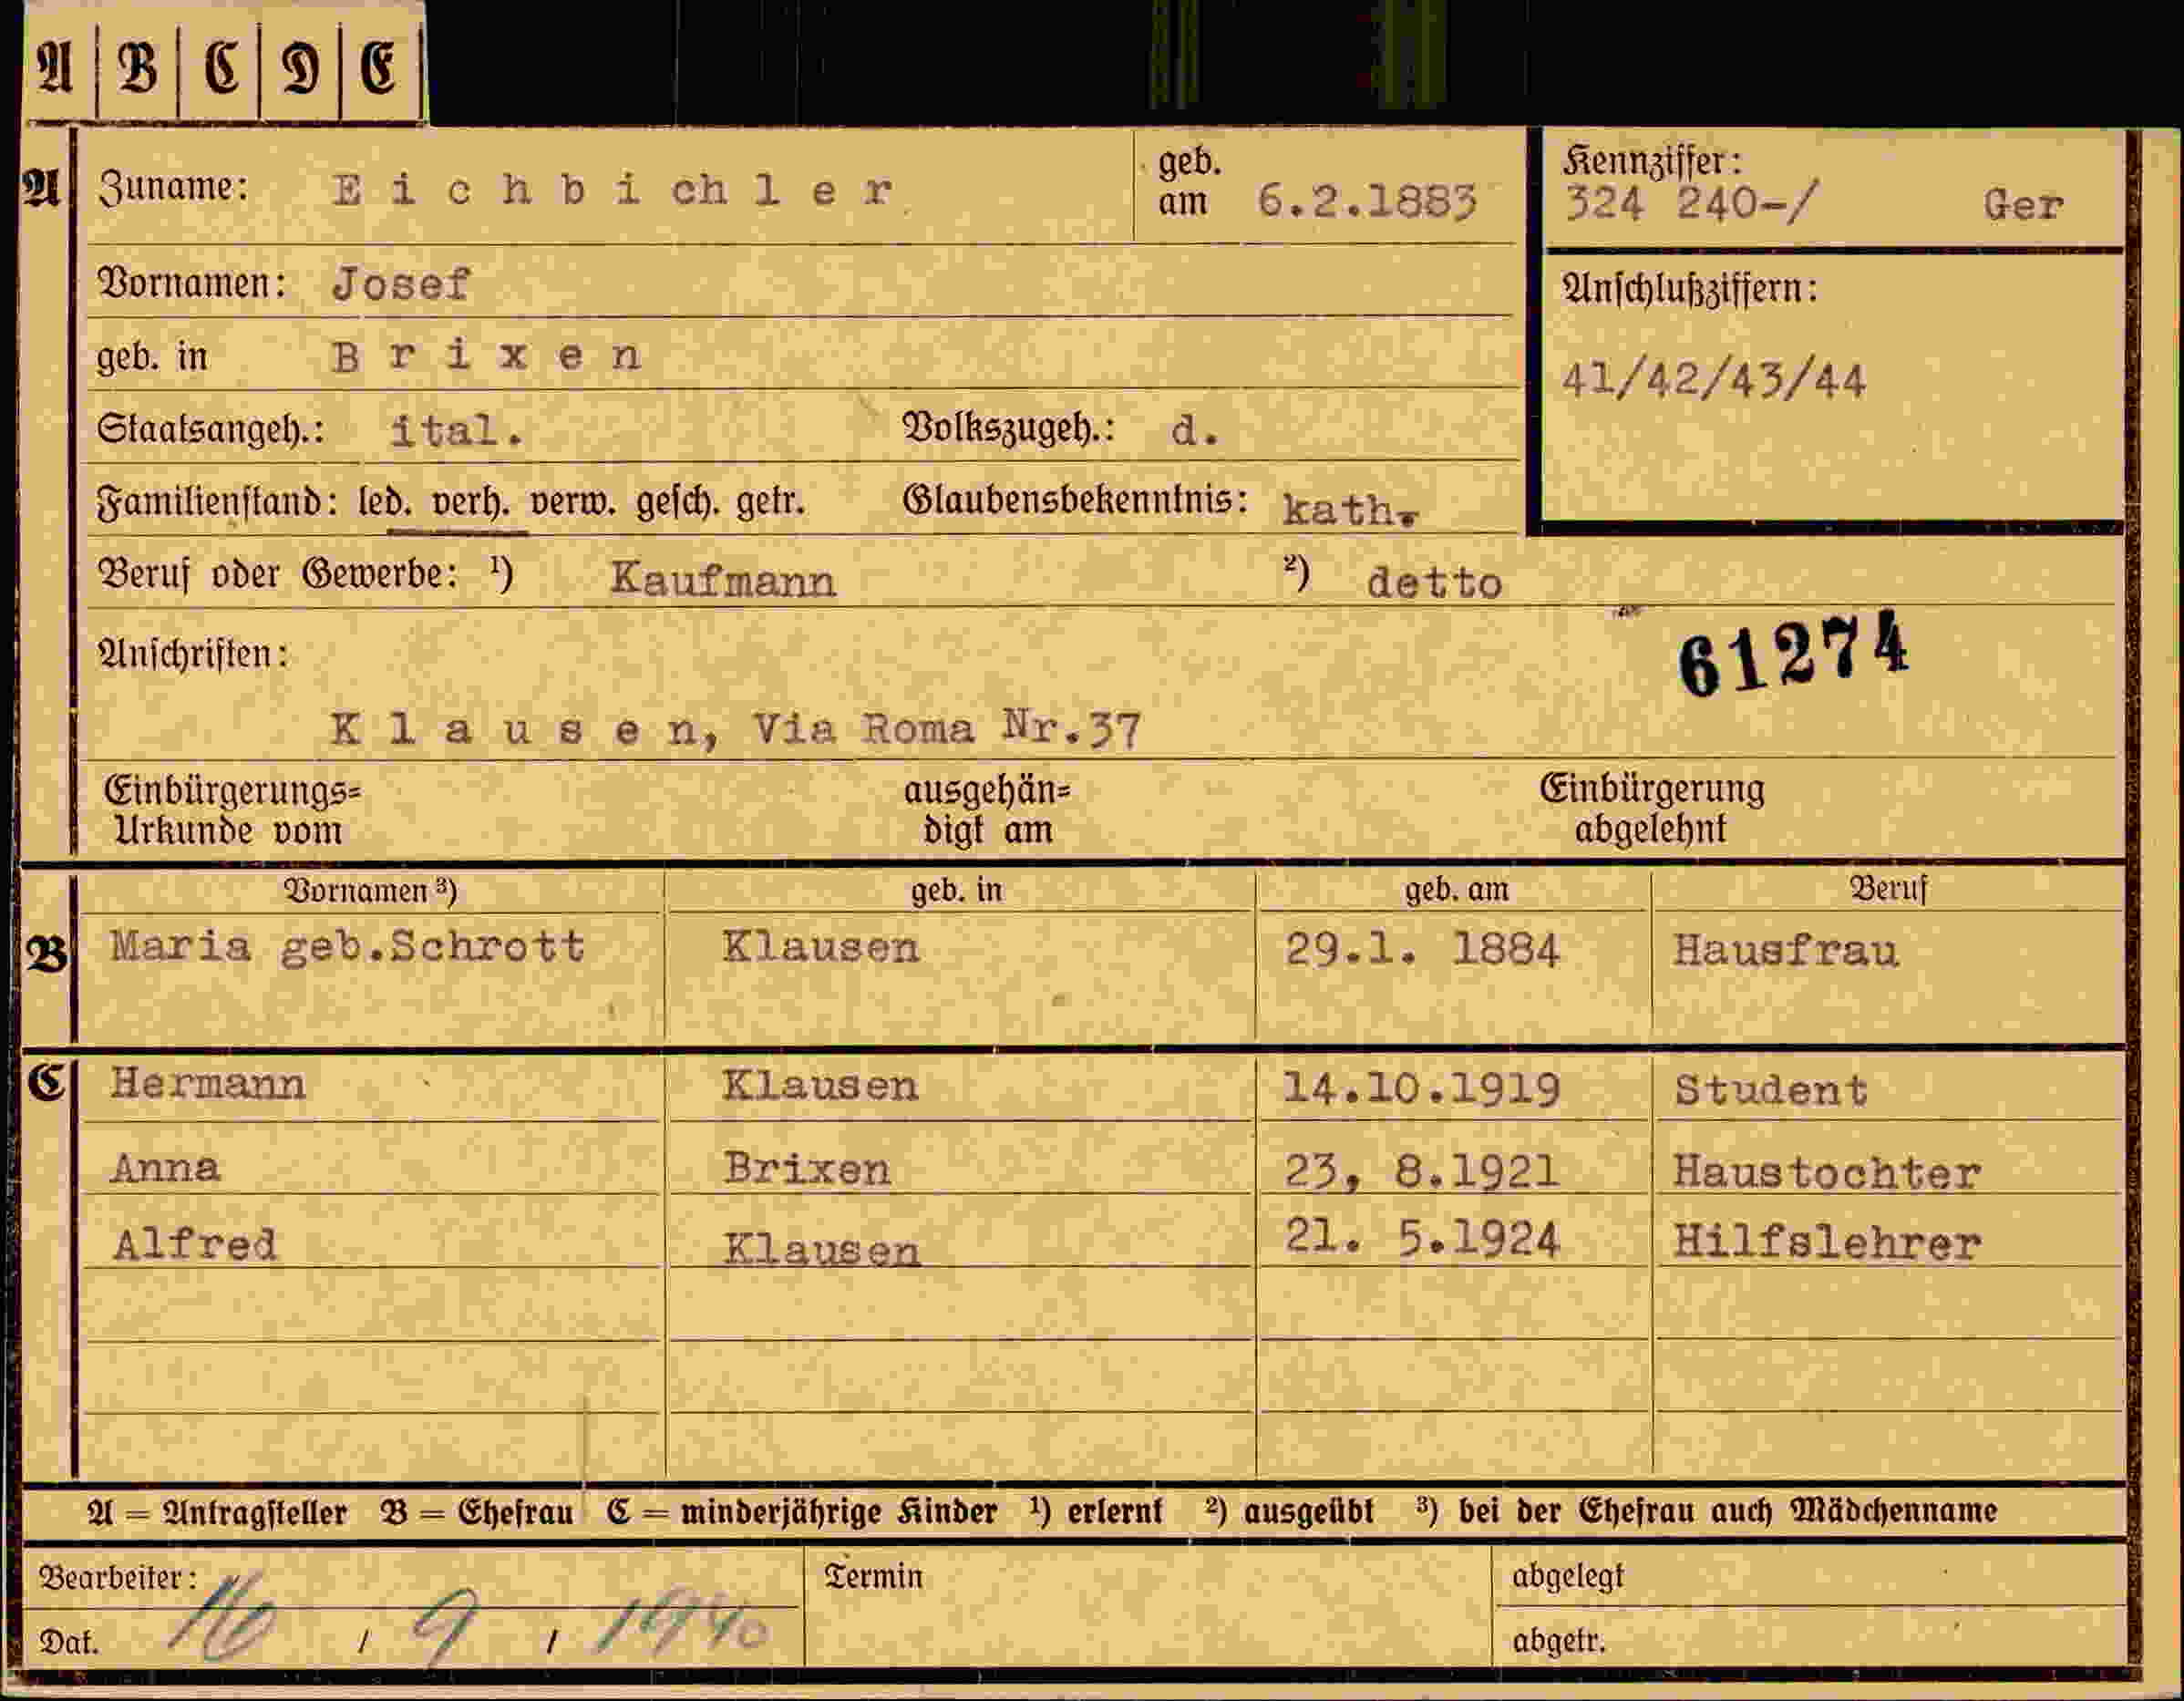 A | B | C | D | E
A Zuname: Eichbichler geb. am 6.2.1883 Kennziffer: 324 240-/ Ger
Vornamen: Josef
Anschlußziffern:
geb. in Brixen
41/42/43/44
Staatsangeh.: ital. Volkszugeh.: d.
Familienstand: led. verh. verw. gesch. getr. Glaubensbekenntnis: kath.
Beruf oder Gewerbe: ¹) Kaufmann ²) detto
Anschriften: 61274
Klausen, Via Roma Nr.37
Einbürgerungs= ausgehän= Einbürgerung
Urkunde vom digt am abgelehnt
Vornamen ³) geb. in geb. am Beruf
B Maria geb.Schrott Klausen 29.1. 1884 Hausfrau
C Hermann Klausen 14.10.1919 Student
Anna Brixen 23, 8.1921 Haustochter
Alfred Klausen 21. 5.1924 Hilfslehrer
A = Antragsteller B = Ehefrau C = minderjährige Kinder ¹) erlernt ²) ausgeübt ³) bei der Ehefrau auch Mädchenname
Bearbeiter: Termin abgelegt
Dat. 16 / 9 / 1940 abgetr.